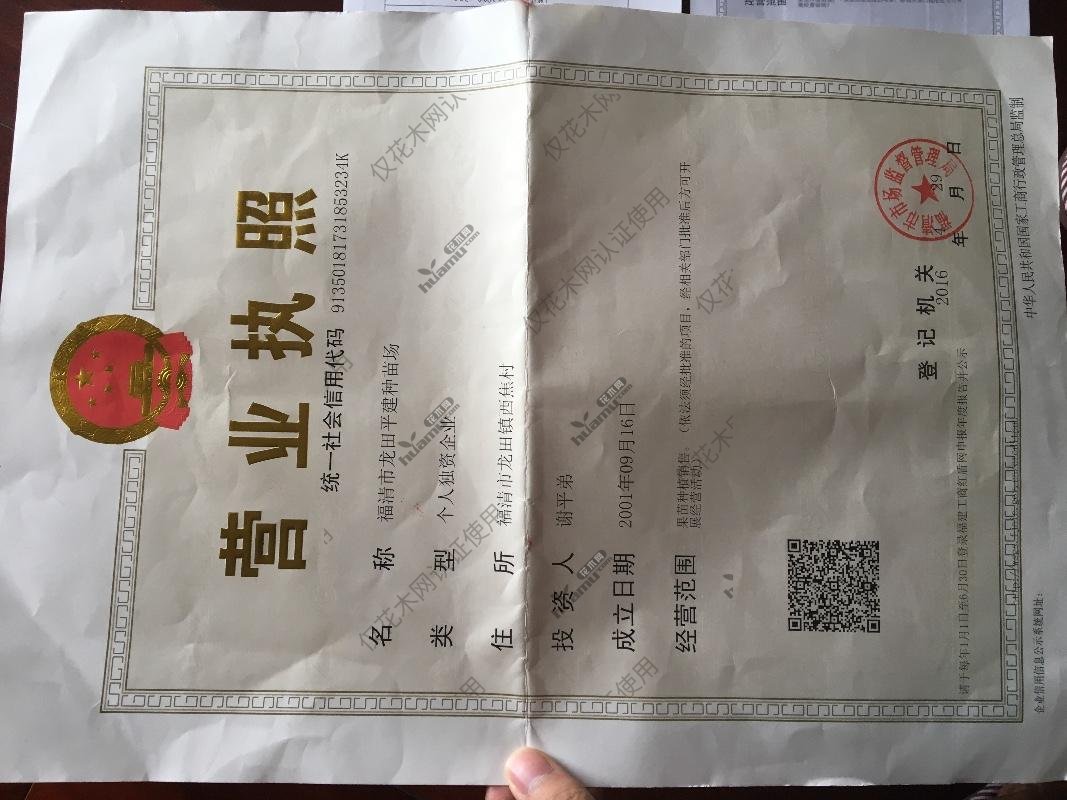 营业执照
统一社会信用代码 91350181731853234K
名称 福清市龙田平建种苗场
类型 个人独资企业
住所 福清市龙田镇西焦村
投资人 谢平弟
成立日期 2001年09月16日
经营范围 果苗种植销售。（依法须经批准的项目，经相关部门批准后方可开
展经营活动）
登记机关
福清市市场监督管理局
2016年 月29日
请于每年1月1日至6月30日登录福建工商红盾网申报年度报告并公示
企业信用信息公示系统网址：
中华人民共和国国家工商行政管理总局监制
仅花木网认证使用
花木网
huamu.com